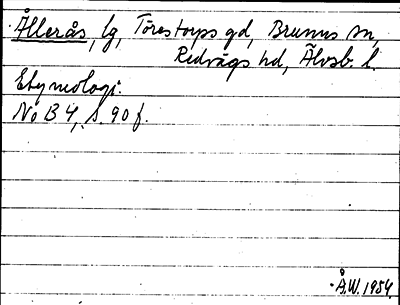 Ållerås, lg, Torestorps gd, Brunns sn,
Redvägs hd, Älvsb. l.
Etymologi.
NoB 4, s. 90 f.
Å.W. 1954